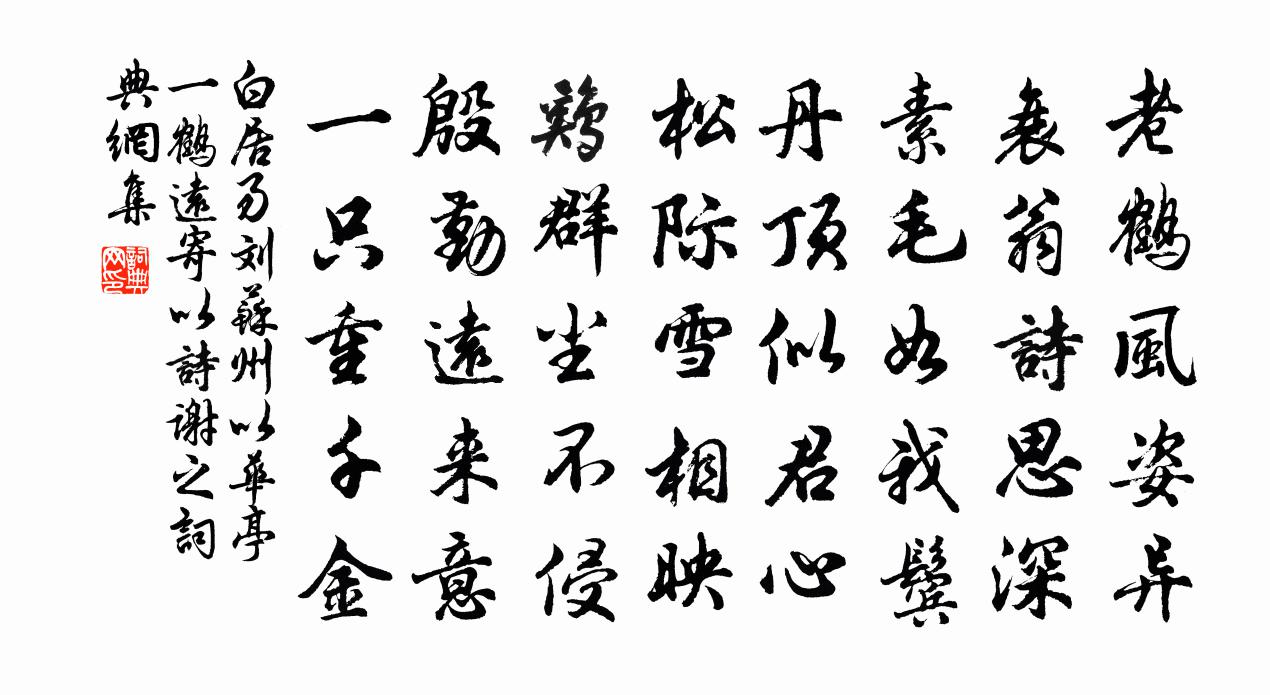 老鶴風姿异
衰翁詩思深
素毛如我鬓
丹顶似君心
松际雪相映
鷄群尘不侵
殷勤遠来意
一只重千金
白居易刘蘇州以華亭
一鶴遠寄以詩谢之詞
典網集
詞典网印